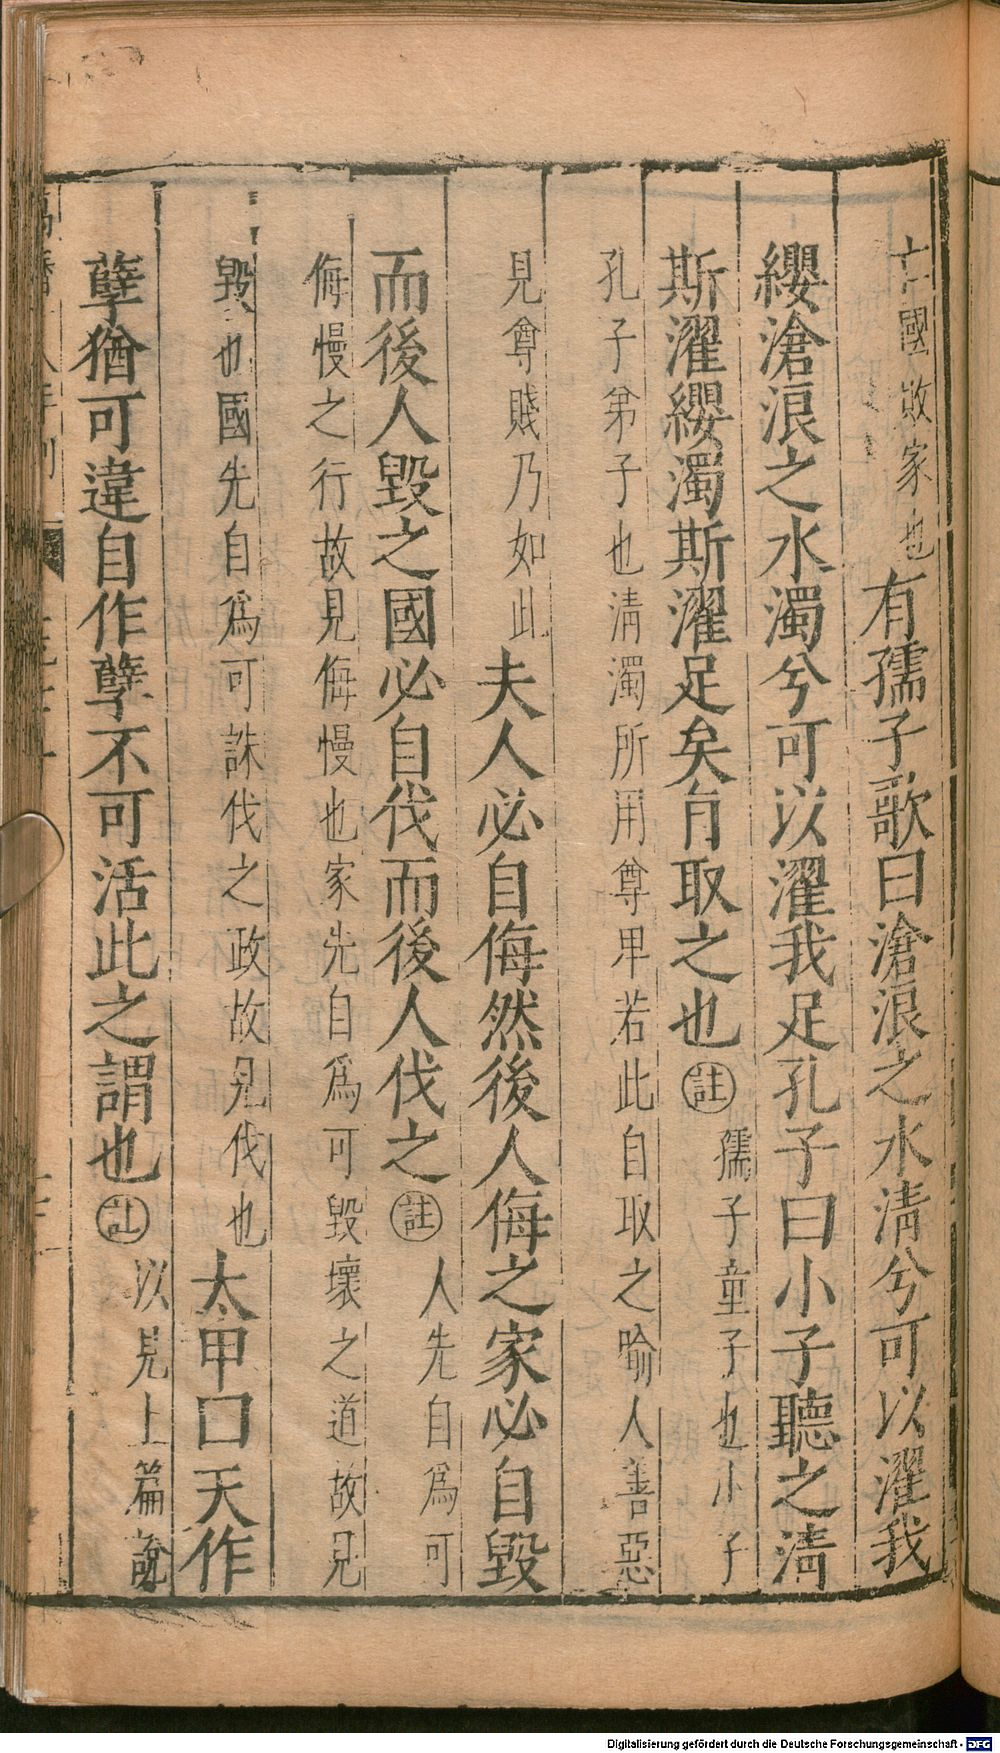 亡國敗家也有孺子歌曰滄浪之水清兮可以濯我
纓滄浪之水濁兮可以濯我足孔子曰小子聽之清
斯濯纓濁斯濯足矣自取之也註孺子童子也小子
孔子弟子也清濁所用尊卑若此自取之喻人善惡
見尊賤乃如此夫人必自侮然後人侮之家必自毀
而後人毀之國必自伐而後人伐之註人先自爲可
侮慢之行故見侮慢也家先自爲可毀壞之道故見
毀也國先自爲可誅伐之政故見伐也太甲曰天作
孽猶可違自作孽不可活此之謂也註以見上篇說
Digitalisierung gefördert durch die Deutsche Forschungsgemeinschaft - DFG